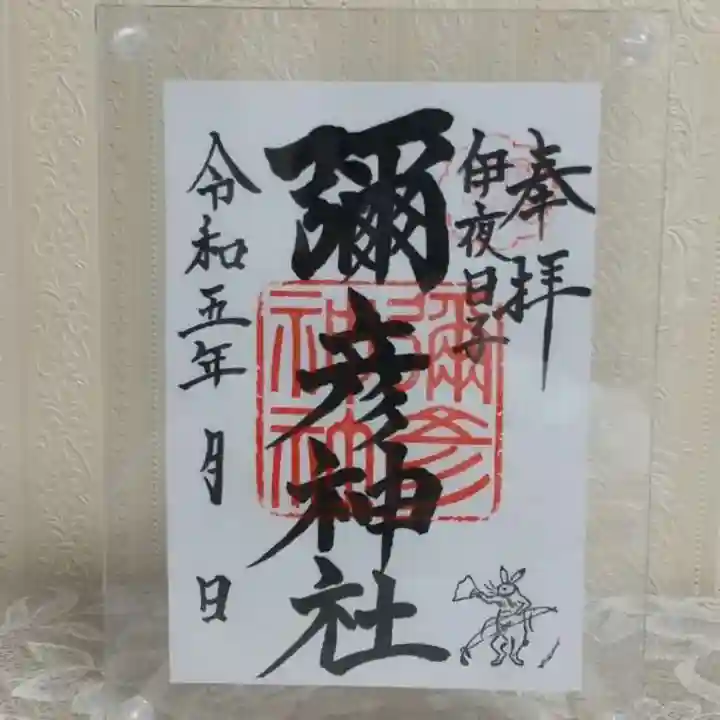 奉拝
伊夜日子
彌彦神社
令和五年 月 日
彌彦
神社